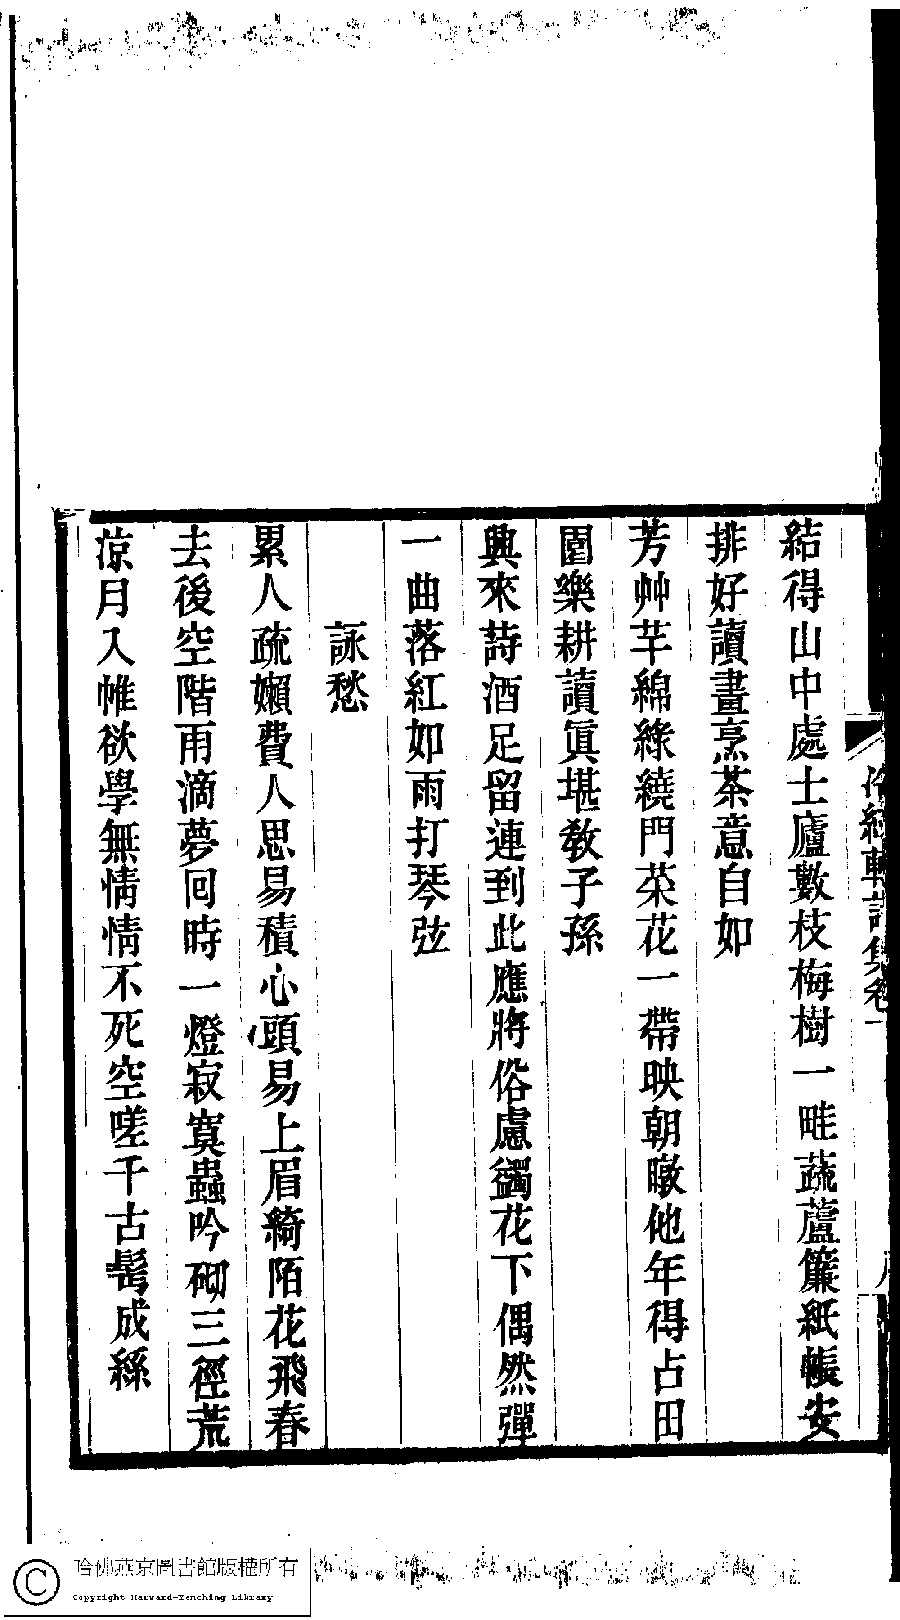 結得山中處士廬數枝梅樹一畦蔬蘆簾紙帳安
排好讀畫烹茶意自如
芳艸芊綿綠繞門菜花一帶映朝暾他年得占田
園樂耕讀眞堪敎子孫
興來詩酒足留連到此應將俗慮蠲花下偶然彈
一曲落紅如雨打琴弦
詠愁
累人疏嬾費人思易積心頭易上眉綺陌花飛春
去後空階雨滴夢回時一燈寂寞蟲吟砌三徑荒
涼月入帷欲學無情情不死空嗟千古鬢成絲
詩集卷一
哈佛燕京圖書館版權所有
Copyright Harvard-Yenching Library